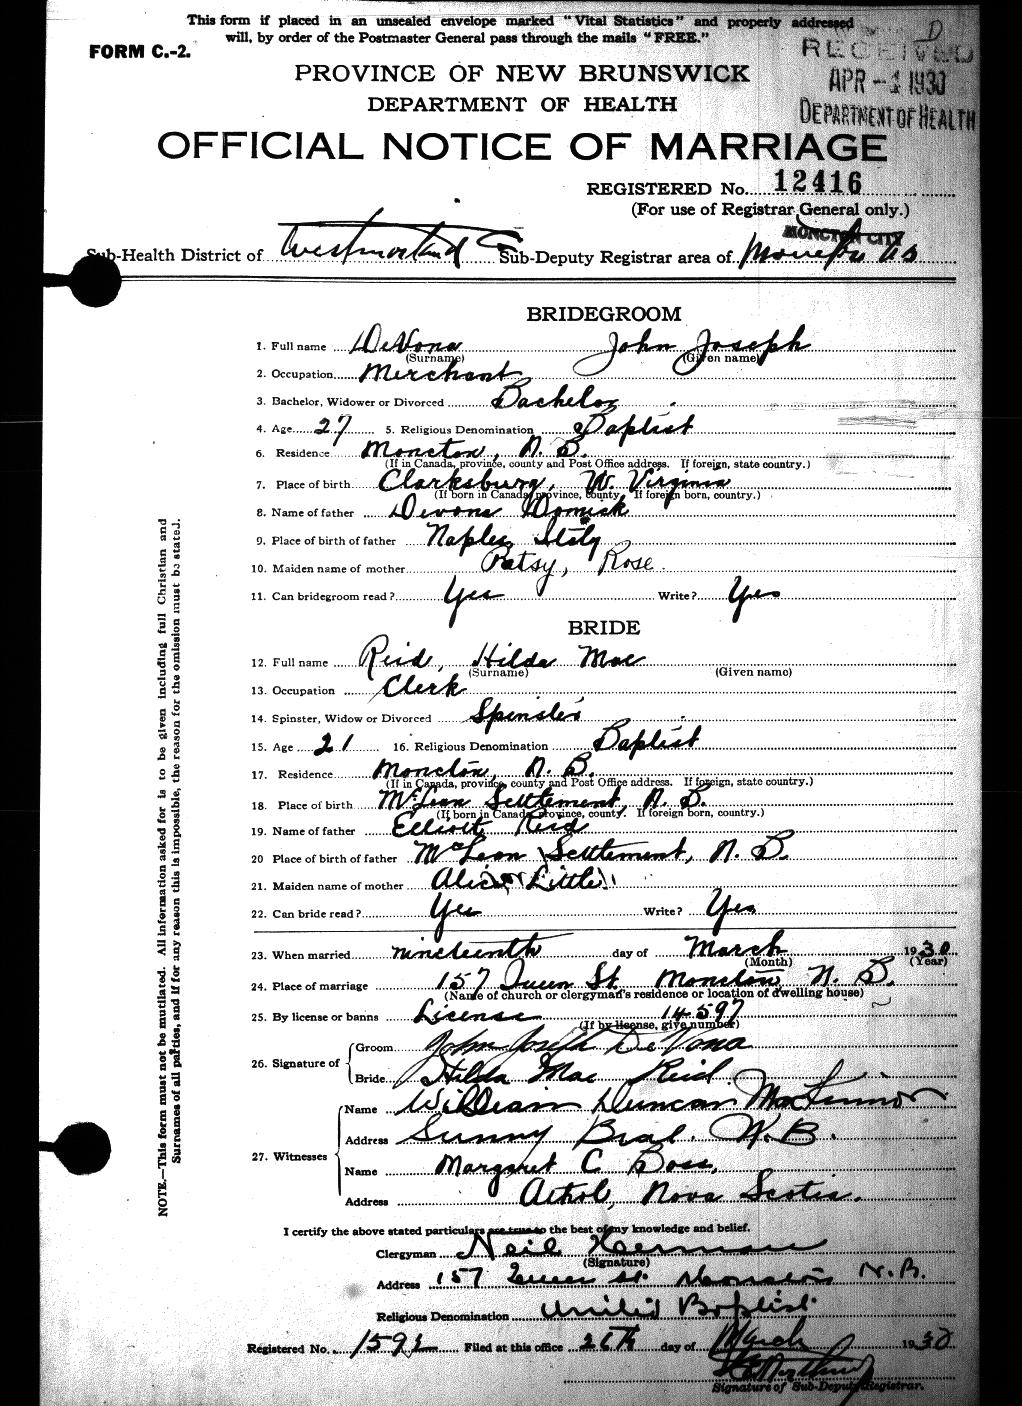 This form if placed in an unsealed envelope marked "Vital Statistics" and properly addressed
will, by order of the Postmaster General pass through the mails "FREE."
D
FORM C.-2.
RECEIVED
APR -1 1930
DEPARTMENT OF HEALTH
PROVINCE OF NEW BRUNSWICK
DEPARTMENT OF HEALTH
OFFICIAL NOTICE OF MARRIAGE
REGISTERED No. 12416
(For use of Registrar General only.)
MONCTON CITY
Sub-Health District of Westmorland Sub-Deputy Registrar area of Moncton
BRIDEGROOM
1. Full name DeVona John Joseph
(Surname) (Given name)
2. Occupation Merchant
3. Bachelor, Widower or Divorced Bachelor
4. Age 27 5. Religious Denomination Baptist
6. Residence Moncton, N. B.
(If in Canada, province, county and Post Office address. If foreign, state country.)
7. Place of birth Clarksburg, W. Virginia
(If born in Canada, province, county. If foreign born, country.)
8. Name of father Devona Domick
9. Place of birth of father Naples Italy
10. Maiden name of mother Patsy, Rose
11. Can bridegroom read? Yes Write? Yes
BRIDE
12. Full name Reid, Hilda Mae
(Surname) (Given name)
13. Occupation Clerk
14. Spinster, Widow or Divorced Spinster
15. Age 21 16. Religious Denomination Baptist
17. Residence Moncton, N. B.
(If in Canada, province, county and Post Office address. If foreign, state country.)
18. Place of birth McLean Settlement, N. B.
(If born in Canada, province, county. If foreign born, country.)
19. Name of father Elliott Reid
20 Place of birth of father McLean Settlement, N. B.
21. Maiden name of mother Alice Little
22. Can bride read? Yes Write? Yes
23. When married nineteenth day of March 1930
(Month) (Year)
24. Place of marriage 157 Queen St. Moncton N. B.
(Name of church or clergyman's residence or location of dwelling house)
25. By license or banns License 14597
(If by license, give number)
26. Signature of Groom John Joseph DeVona
Bride Hilda Mae Reid
27. Witnesses Name William Duncan MacKinnon
Address Sunny Brae. N. B.
Name Margaret C Boss,
Address Athol, Nova Scotia.
I certify the above stated particulars are true to the best of my knowledge and belief.
Clergyman Neil Herman
(Signature)
Address 157 Queen St. Moncton N.B.
Religious Denomination United Baptist
Registered No. 1592 Filed at this office 26th day of March 1930
Signature of Sub-Deputy Registrar.
NOTE.—This form must not be mutilated. All information asked for is to be given including full Christian and
Surnames of all parties, and if for any reason this is impossible, the reason for the omission must be stated.